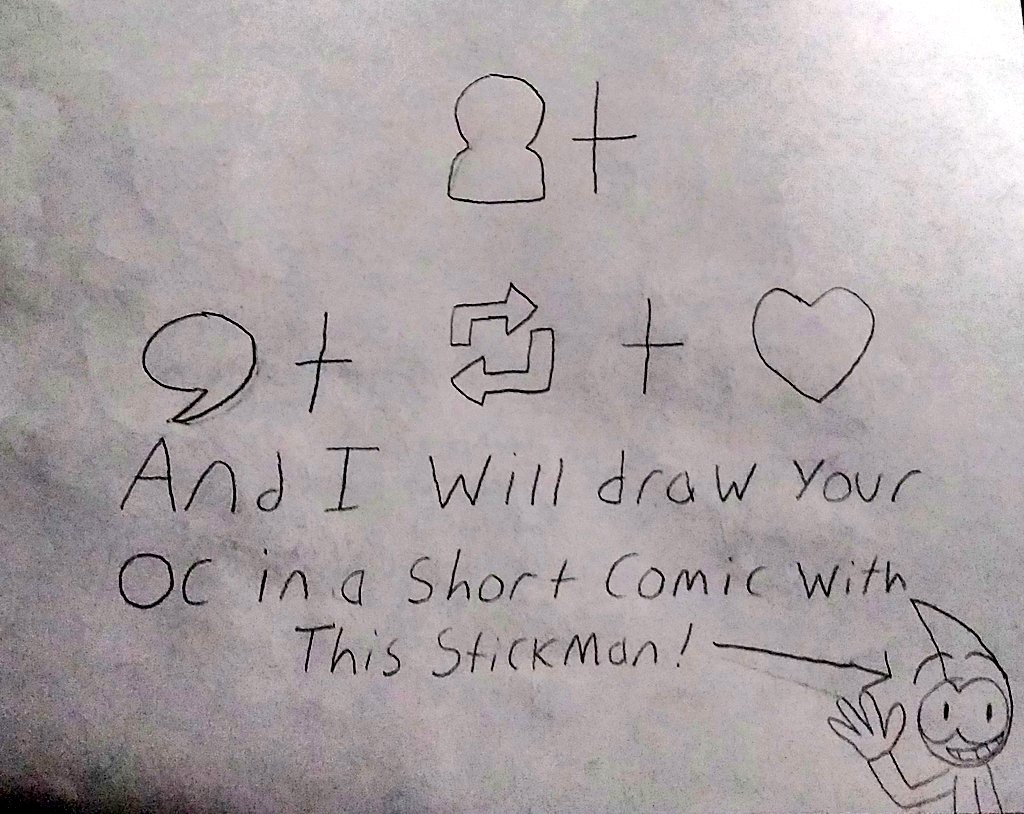 +
+ +
And I Will draw Your
OC in a Short Comic With
This Stickman!